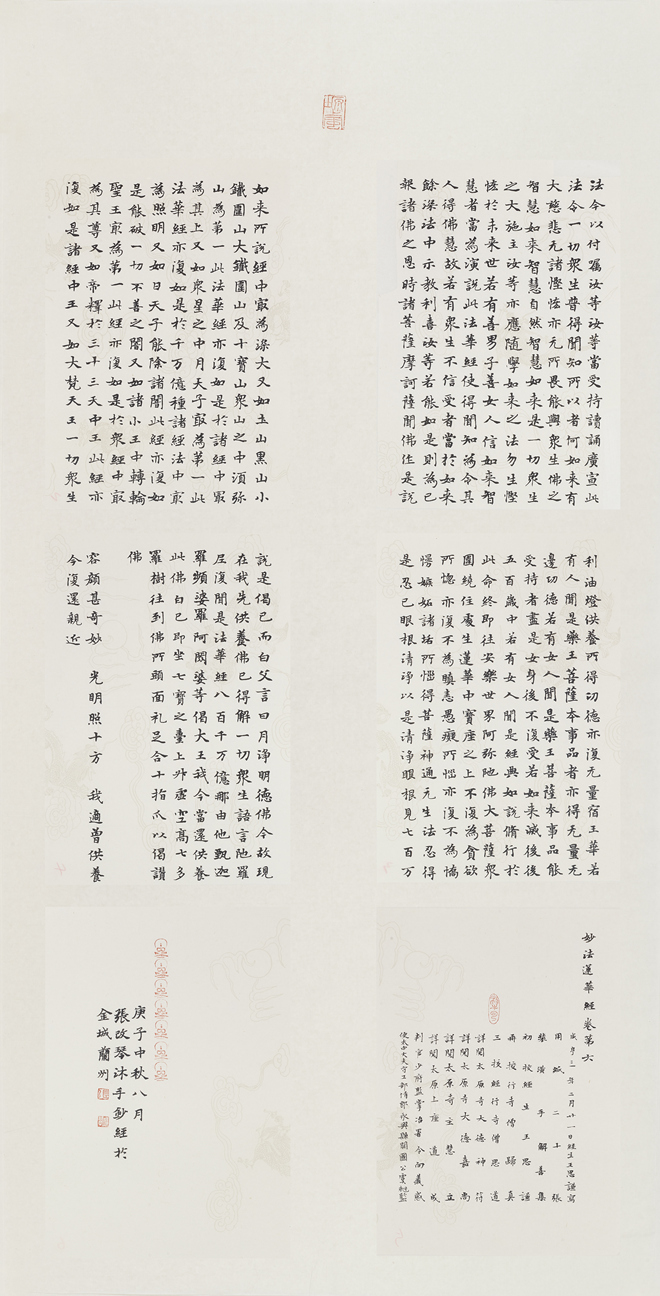 法令以付嘱汝等汝等當受持讀誦廣宣此
法令一切衆生普得聞知所以者何如来有
大慈悲无諸慳悋亦无所畏能與衆生佛之
智慧如来智慧自然智慧如来是一切衆生
之大施主汝等亦應随學如来之法勿生慳
悋於未来世若有善男子善女人信如来智
慧者當為演說此法華經使得聞知為令其
人得佛慧故若有衆生不信受者當於如来
餘深法中示教利喜汝等若能如是則為已
報諸佛之恩時諸菩薩摩訶薩聞佛作是說
如来所說經中㝡為深大又如土山黒山小
鐵圍山大鐵圍山及十寶山衆山之中湏弥
山為第一此法華經亦復如是於諸經中㝡
為其上又如衆星之中月天子㝡為第一此
法華經亦復如是於千万億種諸經法中㝡
為照明又如日天子能除諸闇此經亦復如
是能破一切不善之闇又如諸小王中轉輪
聖王㝡為第一此經亦復如是於衆經中㝡
為其尊又如帝釋於三十三天中王此經亦
復如是諸經中王又如大梵天王一切衆生
利油燈供養所得功德亦復无量宿王華若
有人聞是藥王菩薩本事品者亦得无量无
邊功德若有女人聞是藥王菩薩本事品能
受持者盡是女身後不復受若如来滅後後
五百歲中若有女人聞是經典如說脩行於
此命終即往安樂世界阿弥陁佛大菩薩衆
圍繞住處生蓮華中寶座之上不復為貪欲
所惱亦復不為瞋恚愚癡所惱亦復不為憍
慢嫉妬諸垢所惱得菩薩神通无生法忍得
是忍已眼根清淨以是清淨眼根見七百万
說是偈已而白父言日月淨明德佛今故現
在我先供養佛已得解一切衆生語言陁羅
尼復聞是法華經八百千万億那由他甄迦
羅頻婆羅阿閦婆等偈大王我今當還供養
此佛白已即坐七寶之臺上昇虛空高七多
羅樹往到佛所頭面礼足合十指爪以偈讃
佛
容顔甚奇妙 光明照十方 我適曽供養
今復還親近
妙法蓮華經卷第六
二月廿一日經生王思謙寫
用紙二十張
裝潢手解善集
初校經生王思謙
再校行寺僧歸真
三校經行寺僧思道
詳閲太原寺大德神符
詳閲太原寺大德嘉尚
詳閲太原寺主慧立
詳閲太原寺上座道成
判官少府監掌冶署令向義感
庚子中秋八月
張改琴沐手鈔經於
金城蘭州